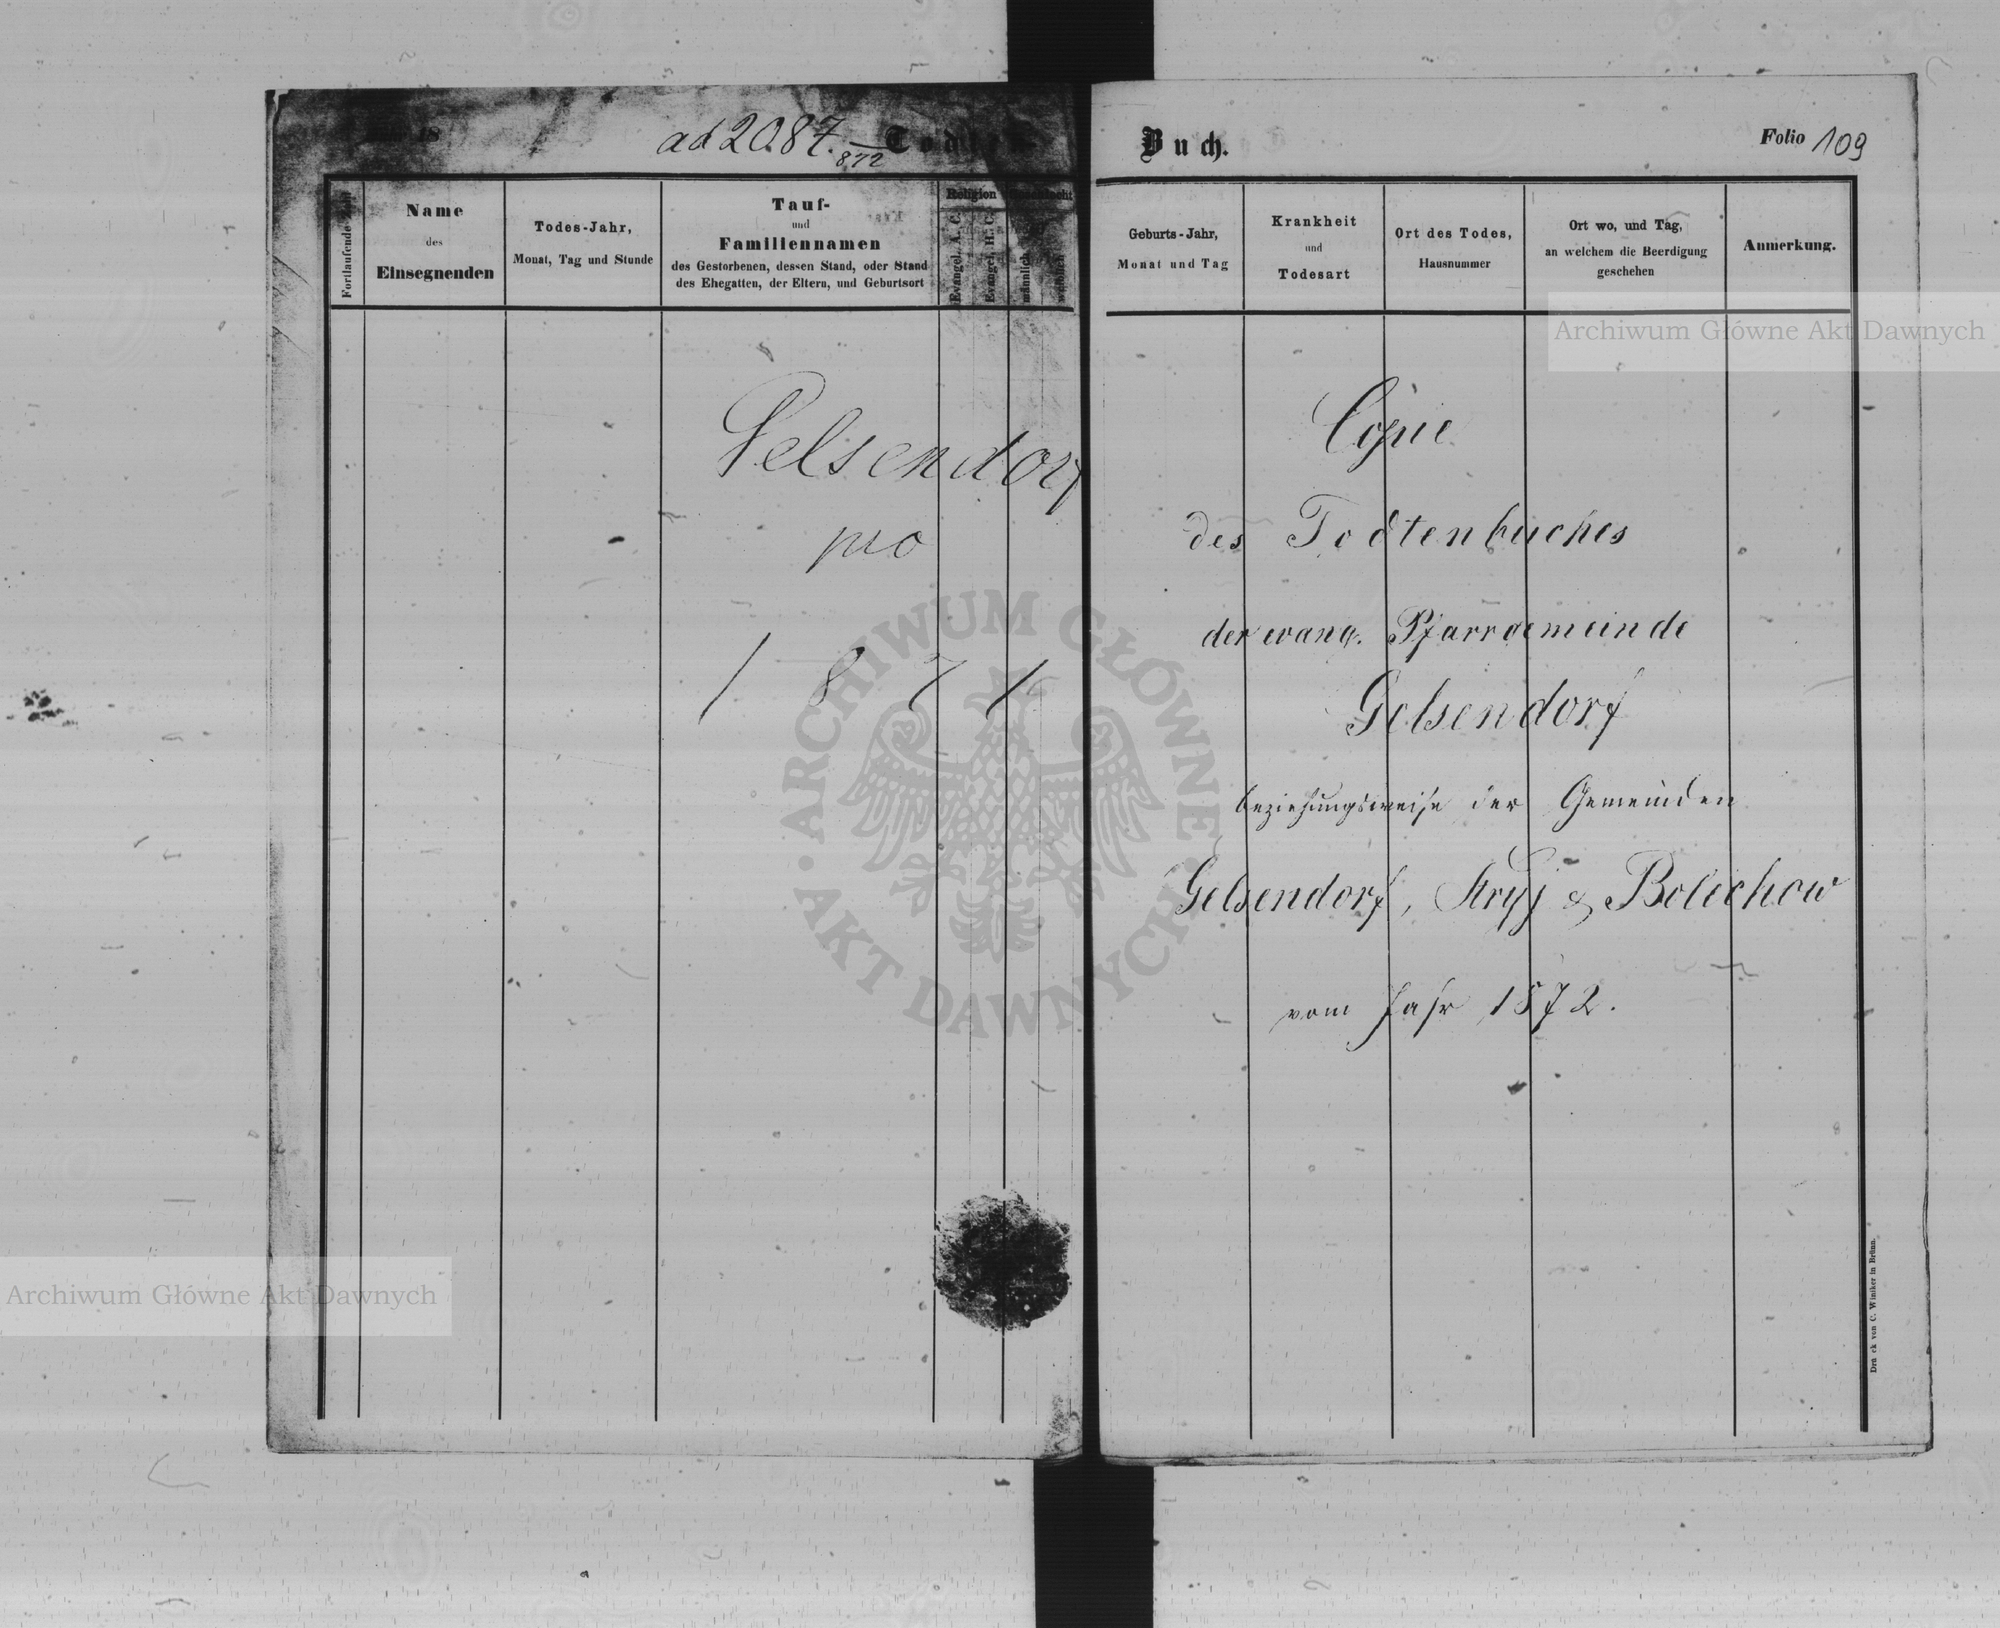 18
ad 2087.
872
Todten-
Fortlaufende Zahl
Name
des
Einsegnenden
Todes-Jahr,
Monat, Tag und Stunde
Tauf-
und
Familiennamen
des Gestorbenen, dessen Stand, oder Stand
des Ehegatten, der Eltern, und Geburtsort
Religion
Evangel. A. C.
Evangel. H. C.
männlich
weiblich
Gelsendorf
pro
1871
Buch.
Folio 109
Geburts-Jahr,
Monat und Tag
Krankheit
und
Todesart
Ort des Todes,
Hausnummer
Ort wo, und Tag,
an welchem die Beerdigung
geschehen
Anmerkung.
Copie
des Todtenbuches
der evang. Pfarrgemeinde
Gelsendorf
beziehungsweise der Gemeinden
Gelsendorf, Stryj & Bolechow
vom Jahr 1872.
Druck von C. Winiker in Brünn.
Archiwum Główne Akt Dawnych
Archiwum Główne Akt Dawnych
ARCHIWUM GŁÓWNE • AKT DAWNYCH •